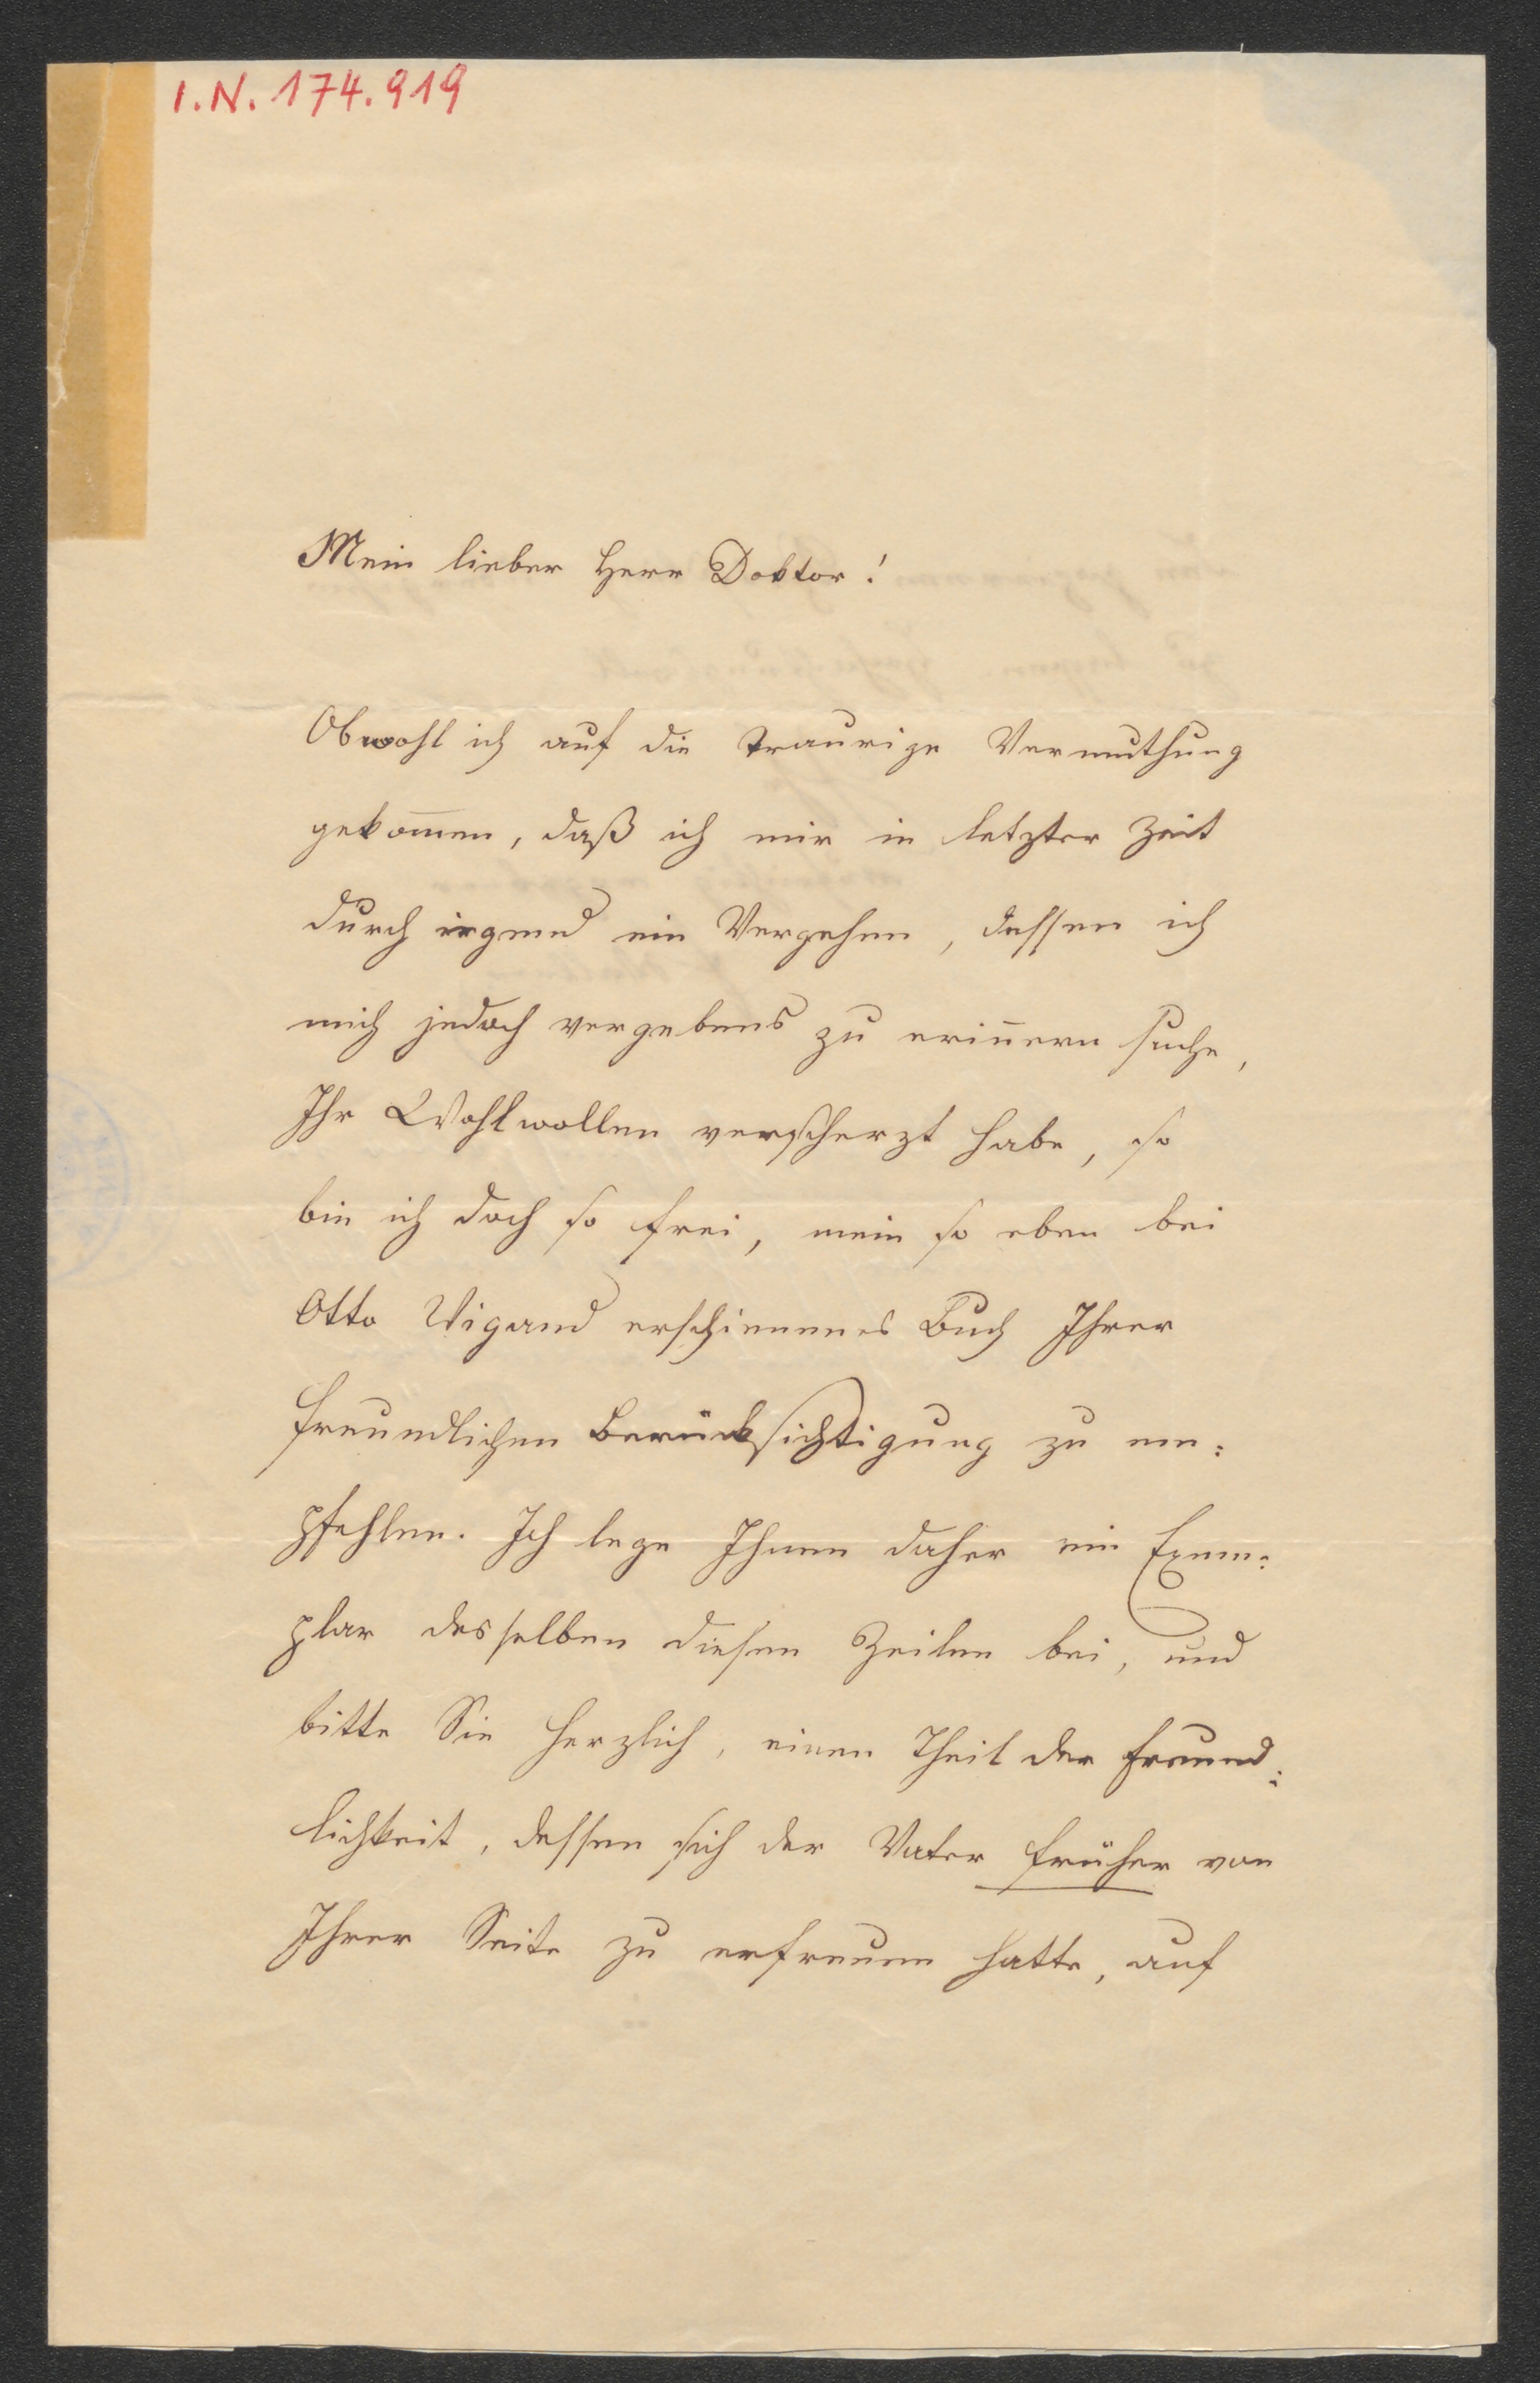 I.N. 174.919
Mein lieber Herr Doktor!
Obwohl ich auf die traurige Vermuthung
gekom̅en, daß ich mir in letzter Zeit
durch irgend ein Vergehen, dessen ich
mich jedoch vergebens zu erin̅ern suche,
Ihr Wohlwollen verscherzt habe, so
bin ich doch so frei, mein so eben bei
Otto Wigand erschienenes Buch Ihrer
freundlichen Berücksichtigung zu em:
pfehlen. Ich lege Ihnen daher ein Exem:
plar desselben diesen Zeilen bei, und
bitte Sie herzlich, einen Theil der Freund:
lichkeit, dessen sich der Vater früher von
Ihrer Seite zu erfreuen hatte, auf